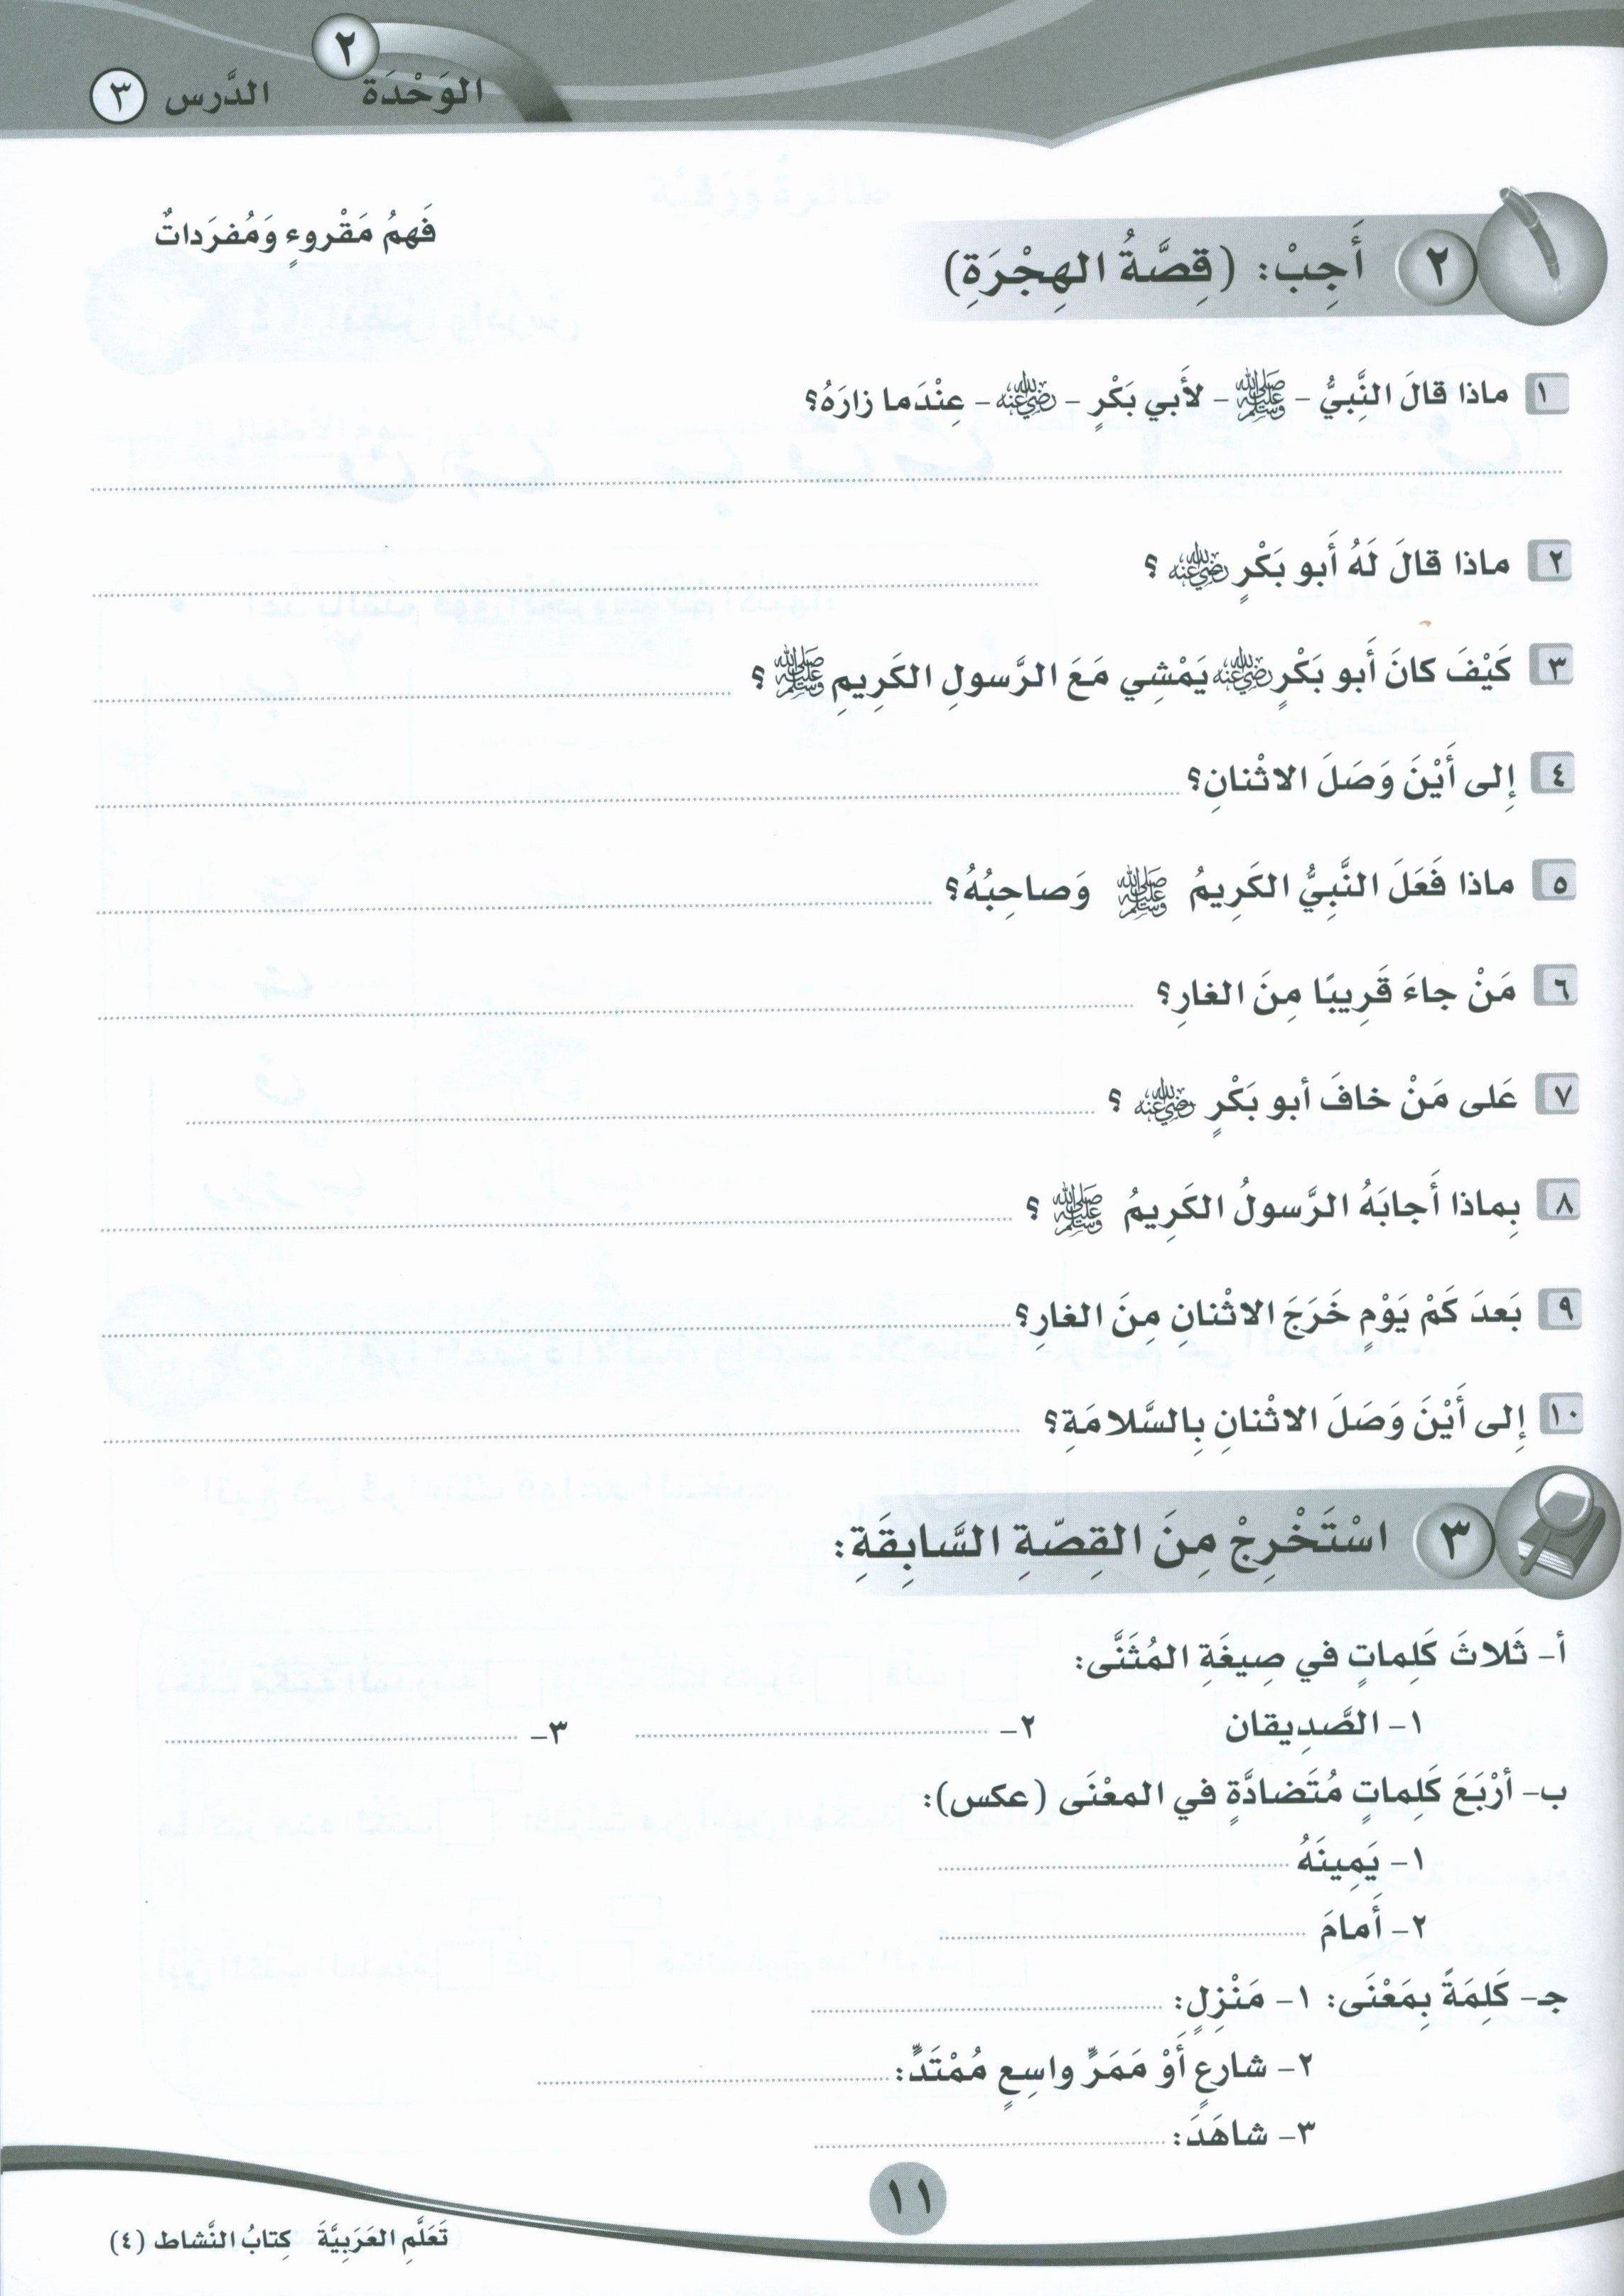 الوَحْدَة ٢ الدَّرس ٣
فَهمُ مَقْروءٍ وَمُفرَداتٌ
٢ أَجِبْ: (قِصَّةُ الهِجْرَةِ)
١ ماذا قالَ النَّبيُّ - ﷺ - لأَبي بَكْرٍ - رضي الله عنه - عِنْدَما زارَهُ؟
٢ ماذا قالَ لَهُ أَبو بَكْرٍ رضي الله عنه ؟
٣ كَيْفَ كانَ أَبو بَكْرٍ رضي الله عنه يَمْشِي مَعَ الرَّسولِ الكَرِيمِ ﷺ ؟
٤ إِلى أَيْنَ وَصَلَ الاثْنانِ؟
٥ ماذا فَعَلَ النَّبِيُّ الكَرِيمُ ﷺ وَصاحِبُهُ؟
٦ مَنْ جاءَ قَرِيبًا مِنَ الغارِ؟
٧ عَلى مَنْ خافَ أبو بَكْرٍ رضي الله عنه ؟
٨ بِماذا أَجابَهُ الرَّسولُ الكَرِيمُ ﷺ ؟
٩ بَعدَ كَمْ يَوْمٍ خَرَجَ الاثْنانِ مِنَ الغارِ؟
١٠ إِلى أَيْنَ وَصَلَ الاثْنانِ بِالسَّلامَةِ؟
٣ اسْتَخْرِجْ مِنَ القِصّةِ السَّابِقَةِ:
أ- ثَلاثَ كَلِماتٍ في صِيغَةِ المُثَنَّى:
١- الصَّدِيقان ٢- ٣-
ب- أرْبَعَ كَلِماتٍ مُتَضادَّةٍ في المعْنَى (عكس):
١- يَمِينَهُ
٢- أَمامَ
جـ- كَلِمَةً بِمَعْنَى: ١- مَنْزِلٍ:
٢- شارعٍ أَوْ مَمَرٍّ واسِعٍ مُمْتَدٍّ:
٣- شاهَدَ:
١١
تَعَلَّمِ العَرَبِيَّةَ كِتابُ النَّشاط (٤)